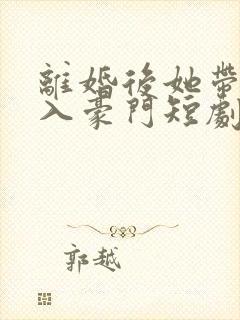 離婚後她帶
入豪門短劇
郭越